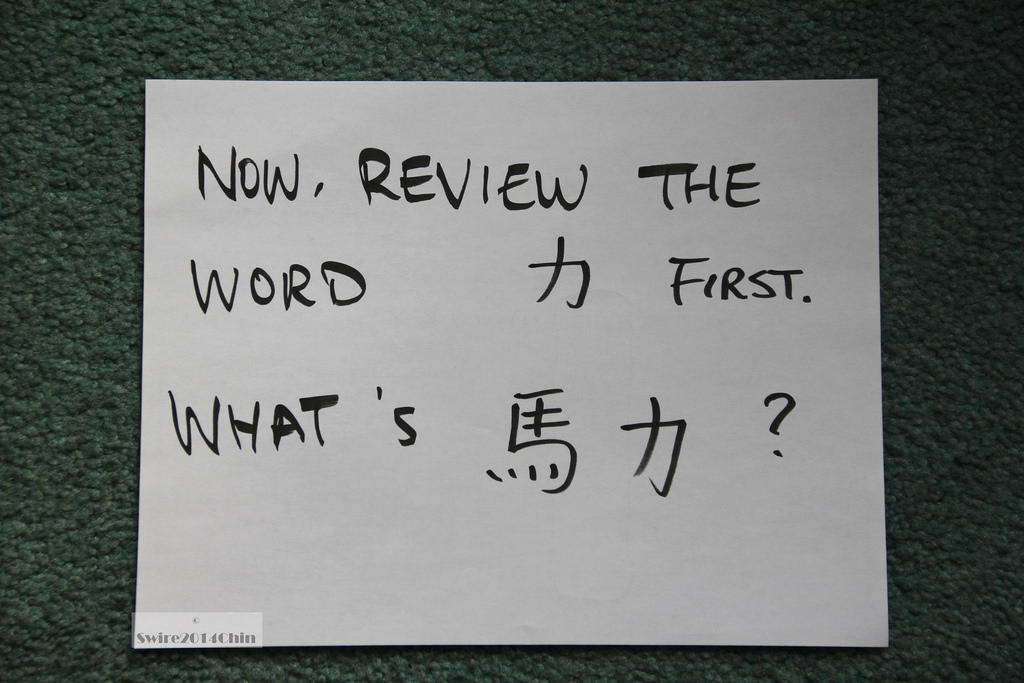 NOW, REVIEW THE
WORD 力 FIRST.
WHAT'S 馬力?
©
Swire2014Chin